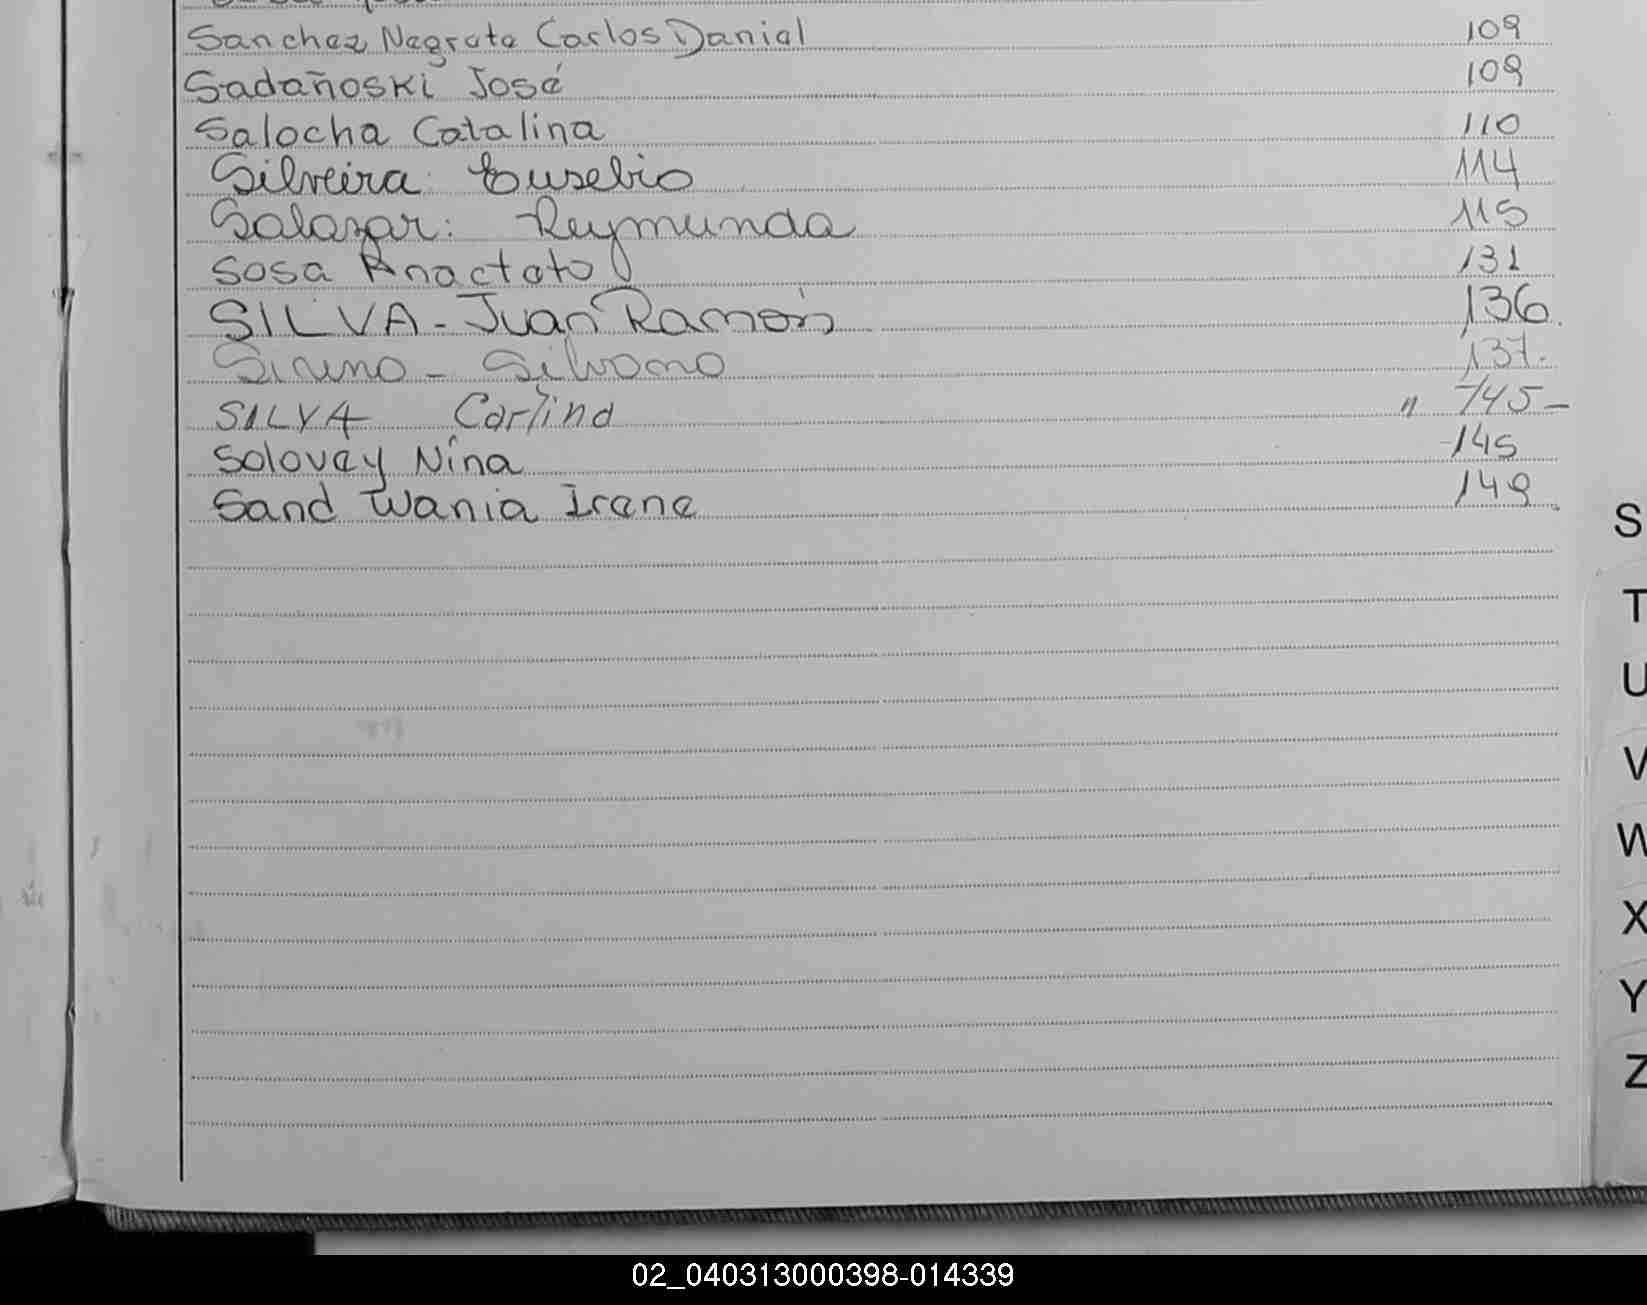 Sanchez Negrete Carlos Daniel 109
Sadañoski José 109
Salocha Catalina 110
Silveira Eusebio 114
Salazar: Reymunda 115
Sosa Anacteto 131
SILVA - Juan Ramón 136.
Silvano 137.
SILVA Carlino " 145 -
Solovey Nina 145
Sand Wania Irene 149
S
T
U
V
W
X
Y
Z
02_040313000398-014339